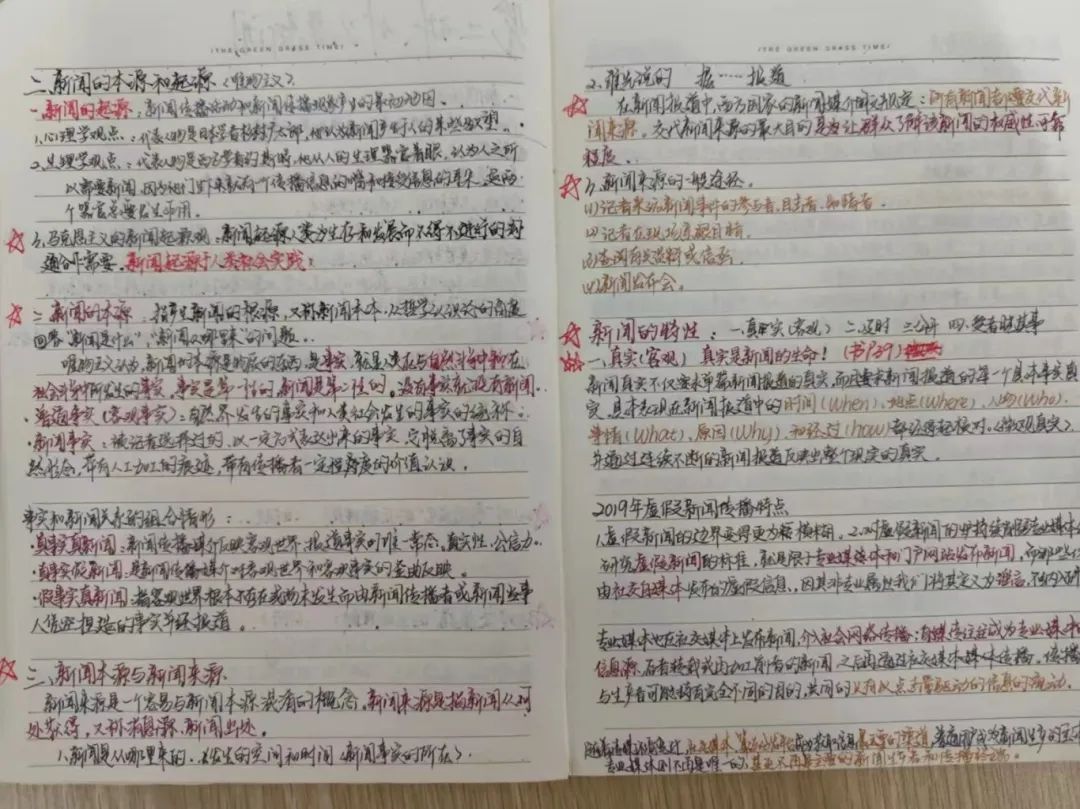 (THE GREEN GRASS TIME)
二、新闻的本源和起源（唯物主义）
一、新闻的起源：新闻传播活动和新闻传播现象产生的最初动因。
1.心理学观点：代表人物是日本学者
2.生理学观点：代表人物是西方学者 他从人的生理器官着眼，认为人之所
以需要新闻，因为他们 有一个传播信息的嘴和接受信息的耳朵，这两
个器官总要发生作用。
3.马克思主义的新闻起源观：新闻起源人类为生存和发展而不得不进行的
需要。新闻起源于人类社会实践。
二、新闻的本源：指产生新闻的根源，又称新闻本体，从哲学认识论的角度
回答“新闻是什么”，“新闻从哪里来”的问题。
唯物主义认为，新闻的本源是物质的东西，是事实，就是人类在与自然斗争中和在
社会斗争所发生的事实，事实是第一性的，新闻是第二性的。没有事实就没有新闻。
·普通事实（客观事实）：自然界发生的事实和人类社会发生的事实的统称。
·新闻事实：被记者选择过的，以一定方式表达出来的事实，它脱离了事实的自
然状态，带有人工加工的痕迹，带有传播者一定程度的价值认识。
事实和新闻关系的组合情形：
·真事实真新闻：新闻传播媒介反映客观世界、报道事实的唯一常态。真实性、公信力。
·真事实假新闻：是新闻传播媒介对客观世界和客观事实的歪曲反映。
·假事实真新闻：指客观世界根本不存在或尚未发生而由新闻传播者或新闻当事
人凭空捏造的事实并经报道。
三、新闻本源与新闻来源
新闻来源是一个容易与新闻本源混淆的概念。新闻来源是指新闻从何
处获得，又称消息源、新闻出处。
1.新闻是从哪里来的。发生的空间和时间（新闻事实的所在）。
(THE GREEN GRASS TIME)
2.谁先说的 据……报道
在新闻报道中，西方国家的新闻媒介 规定：所有新闻都要交代新
闻来源。交代新闻来源的最大目的是为让群众了解该新闻的权威性、可靠
程度。
3.新闻来源的一般途径。
(1)记者来源新闻事件的参与者、目击者、知情者。
(2)记者在现场亲眼目睹。
(3)查阅有关资料或信函。
(4)新闻发布会。
新闻的特性：一.真实（客观） 二.及时 三.公开 四.
一、真实（客观） 真实是新闻的生命！（书P39）
新闻真实不仅要求单篇新闻报道的真实，而且要求新闻报道的每一个具体事实真
实，具体表现在新闻报道中的时间(When)、地点(Where)、人物(Who)、
事情(What)、原因(Why)、和经过(how)都必须经得起核对。（微观真实）
并通过连续不断的新闻报道反映出整个现实的真实。
2019年虚假新闻传播特点
1.虚假新闻的边界变得更为模糊。2.对虚假新闻的 专业媒体
研究虚假新闻的标准，就是限于专业媒体和门户网站发布新闻，而
由社交自媒体发布的虚假信息，因其非专业属性我们将其定义为谣言，不
专业媒体也在社交媒体上发布新闻，介入社会网络传播；自媒体往往成为专业媒体
信息源，后者转载或加工前者的新闻，之后再通过社交媒体传播，传播
与生产者可能持有完全不同的目的，共同的 驱动的信息的流动。
社交媒体 成为获取信息最主要的渠道，普通用户成为新闻生产的主
专业媒体则不再是唯一的，甚至不再是主要的新闻生产者和传播 。